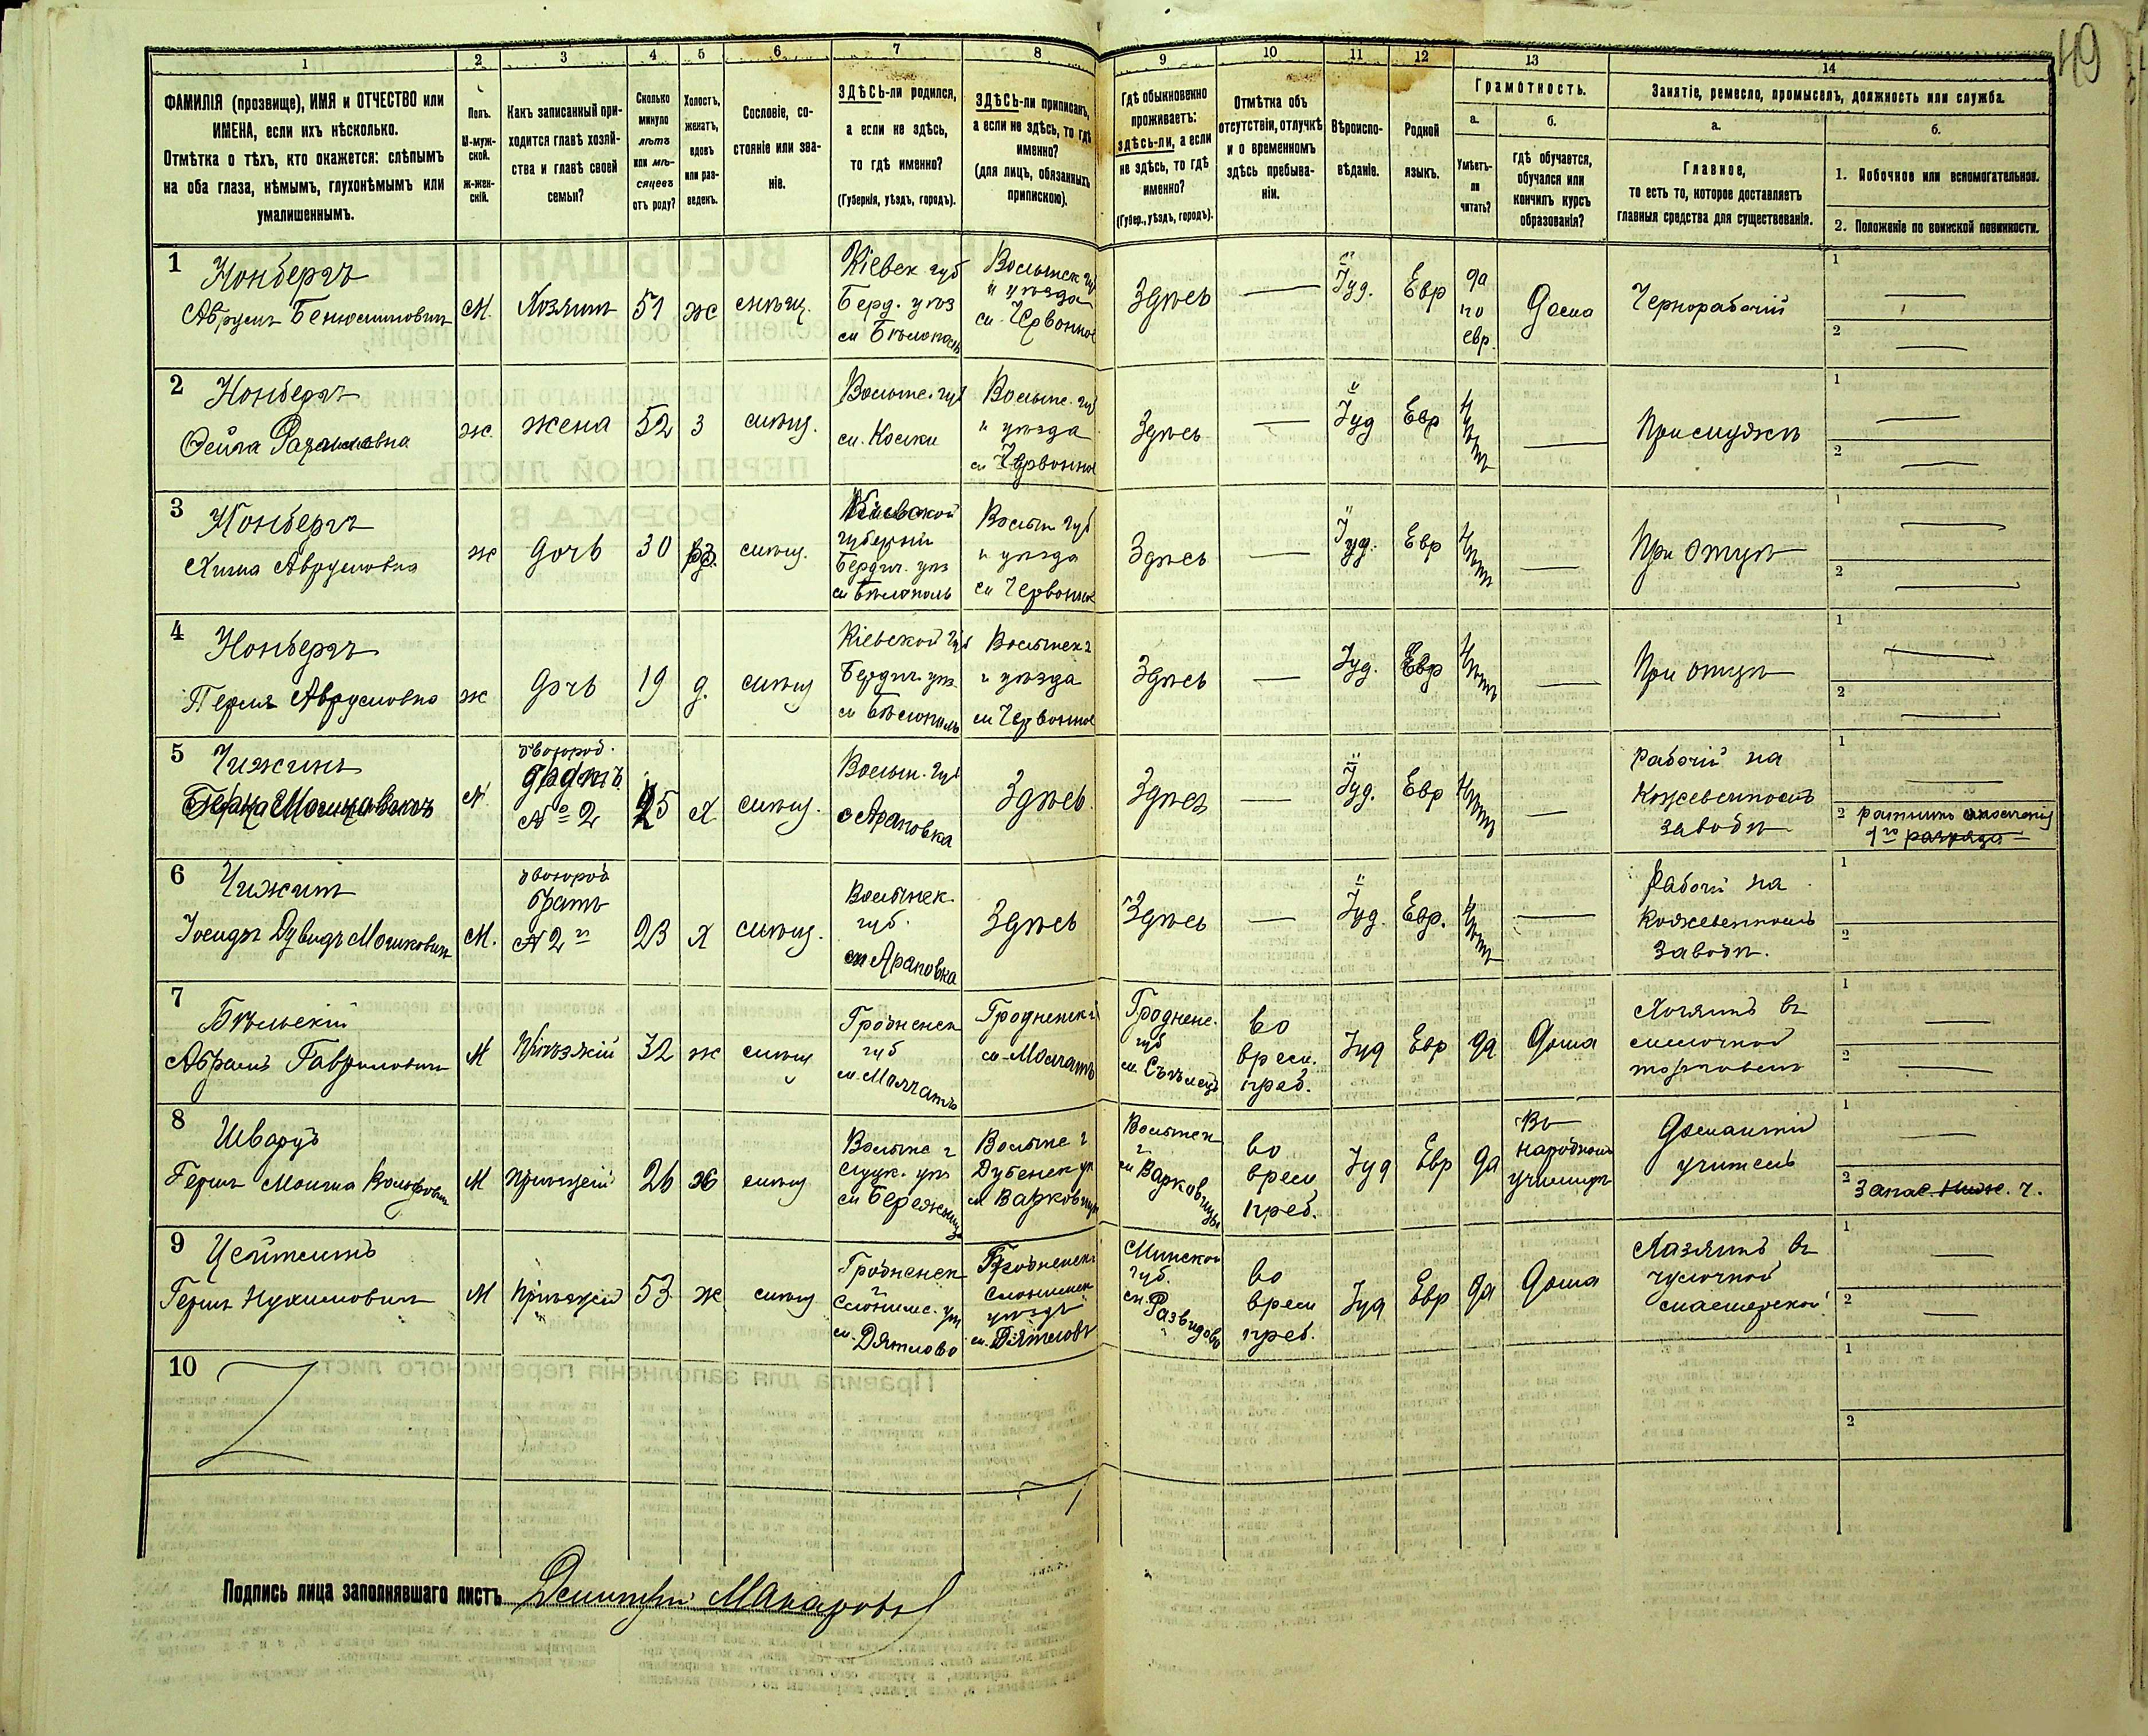 49
1 2 3 4 5 6 7 8 9 10 11 12 13 14
ФАМИЛІЯ (прозвище), ИМЯ и ОТЧЕСТВО или
ИМЕНА, если ихъ нѣсколько.
Отмѣтка о тѣхъ, кто окажется: слѣпымъ
на оба глаза, нѣмымъ, глухонѣмымъ или
умалишеннымъ.
Полъ.
М-муж-
ской.
Ж-жен-
скій.
Какъ записанный при-
ходится главѣ хозяй-
ства и главѣ своей
семьи?
Сколько
минуло
лѣтъ
или мѣ-
сяцевъ
отъ роду?
Холостъ,
женатъ,
вдовъ
или раз-
веденъ.
Сословіе, со-
стояніе или зва-
ніе.
ЗДѢСЬ-ли родился,
а если не здѣсь,
то гдѣ именно?
(Губернія, уѣздъ, городъ).
ЗДѢСЬ-ли приписанъ,
а если не здѣсь, то гдѣ
именно?
(для лицъ, обязанныхъ
припискою).
Гдѣ обыкновенно
проживаетъ:
здѣсь-ли, а если
не здѣсь, то гдѣ
именно?
(Губер., уѣздъ, городъ).
Отмѣтка объ
отсутствіи, отлучкѣ
и о временномъ
здѣсь пребыва-
ніи.
Вѣроиспо-
вѣданіе.
Родной
языкъ.
Грамотность.
а.
Умѣетъ-
ли
читать?
б.
гдѣ обучается,
обучался или
кончилъ курсъ
образованія?
Занятіе, ремесло, промыселъ, должность или служба.
а.
Главное,
то есть то, которое доставляетъ
главныя средства для существованія.
б.
1. Побочное или вспомогательное.
2. Положеніе по воинской повинности.
1
Нонбергъ
Аврумъ Бенюминовичъ
М.
Хозяинъ
51
ж
мѣщ.
Кіевск. губ
Берд. уѣз
м Бѣлополь
Волынск губ
и уѣзда
м. Червонное
Здѣсь
Іуд.
Евр
да
по
евр.
Дома
Чернорабочій
1
2
2
Нонбергъ
Фейга
ж.
жена
52
з
мѣщ.
Волынс. губ
м.
Волынс. губ
и уѣзда
м Червонное
Здѣсь
Іуд
Евр
Нѣтъ
При мужѣ
1
2
3
Нонбергъ
Аврумовна
ж
дочь
30
мѣщ.
Кіевской
губерніи
Бердич. уѣз
м Бѣлополь
Волын губ
и уѣзда
м Червонное
Здѣсь
Іуд.
Евр
Нѣтъ
При отцѣ
1
2
4
Нонбергъ
Перля Аврумовна
ж
дочь
19
д.
мѣщ
Кіевской губ
Бердич. уѣз
м Бѣлополь
Волынск г
и уѣзда
м Червонное
Здѣсь
Іуд.
Евр
Нѣтъ
При отцѣ
1
2
5
Чижикъ
М
двоюрод.
братъ
№ 2
25
Х
мѣщ.
Волын. губ
с Араповка
Здѣсь.
Здѣсь
Іуд.
Евр
Нѣтъ
Рабочій на
Кожевенномъ
заводѣ
1
2 ратникъ ополченія
1го разряда
6
Чижикъ
Іосифъ Дувидъ Мошковичъ
М.
двоюрод
братъ
№ 2й
23
Х
мѣщ.
Волынск.
губ.
м Араповка
Здѣсь
Здѣсь
Іуд.
Евр.
Нѣтъ
Рабочій на
Кожевенномъ
Заводѣ.
1
2
7
Бѣльскій
Абрамъ Гавриловичъ
М
Пріѣзжій
32
ж
мѣщ
Гродненск
губ
м. Молчать
Гродненск г
м. Молчать
Гроднен.
губ
м.
во
врем.
преб.
Іуд
Евр
да
Дома
Хозяинъ въ
торговлѣ
1
2
8
Шварцъ
Гершъ Мошка Вольфовичъ
М
Пріѣзжій
26
Х
мѣщ
Волынс г
Луцк. уѣз
м Бережница
Волынс г
Дубенск уѣ
м Варковичи
Волынск
г
м Варковичи
во
врем
преб.
Іуд
Евр
да
Въ
народномъ
училищѣ
Домашній
учитель
1
2 Запас. Ниж. ч.
9
Цейтлинъ
Гершъ Нухимовичъ
М
Пріѣзжій
53
ж
мѣщ
Гродненск
г
Слонимс. уѣз
м. Дятлово
Гродненск
Слонимск
уѣздъ
м. Дятлово
Минской
губ.
м.
во
врем
преб.
Іуд
Евр
да
Дома
Хозяинъ въ
чулочной
мастерской
1
2
10
1
2
Подпись лица заполнявшаго листъ Дмитрій Макаровъ